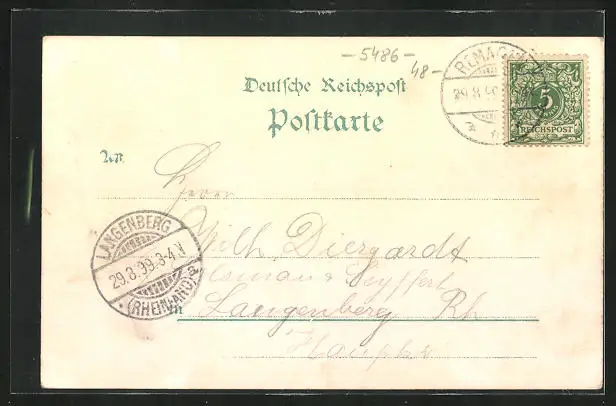 -5486-
48-
REMAGEN
29.8.
5
REICHSPOST
Deutsche Reichspost
Postkarte
An
Herrn
Wilh. Diergardt
Seyffert
Langenberg Rh
in
LANGENBERG
29.8.99.3-4.N
(RHEINLAND)